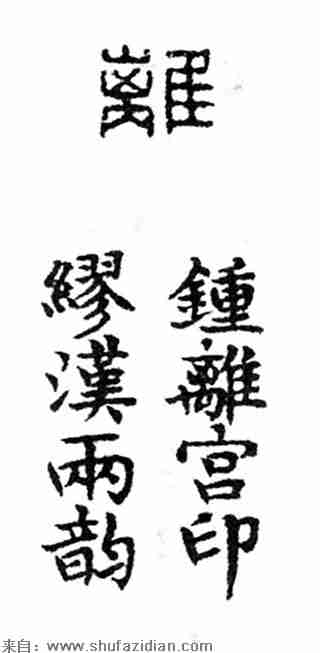 離
鍾離宮印
繆漢兩韵
来自：www.shufazidian.com